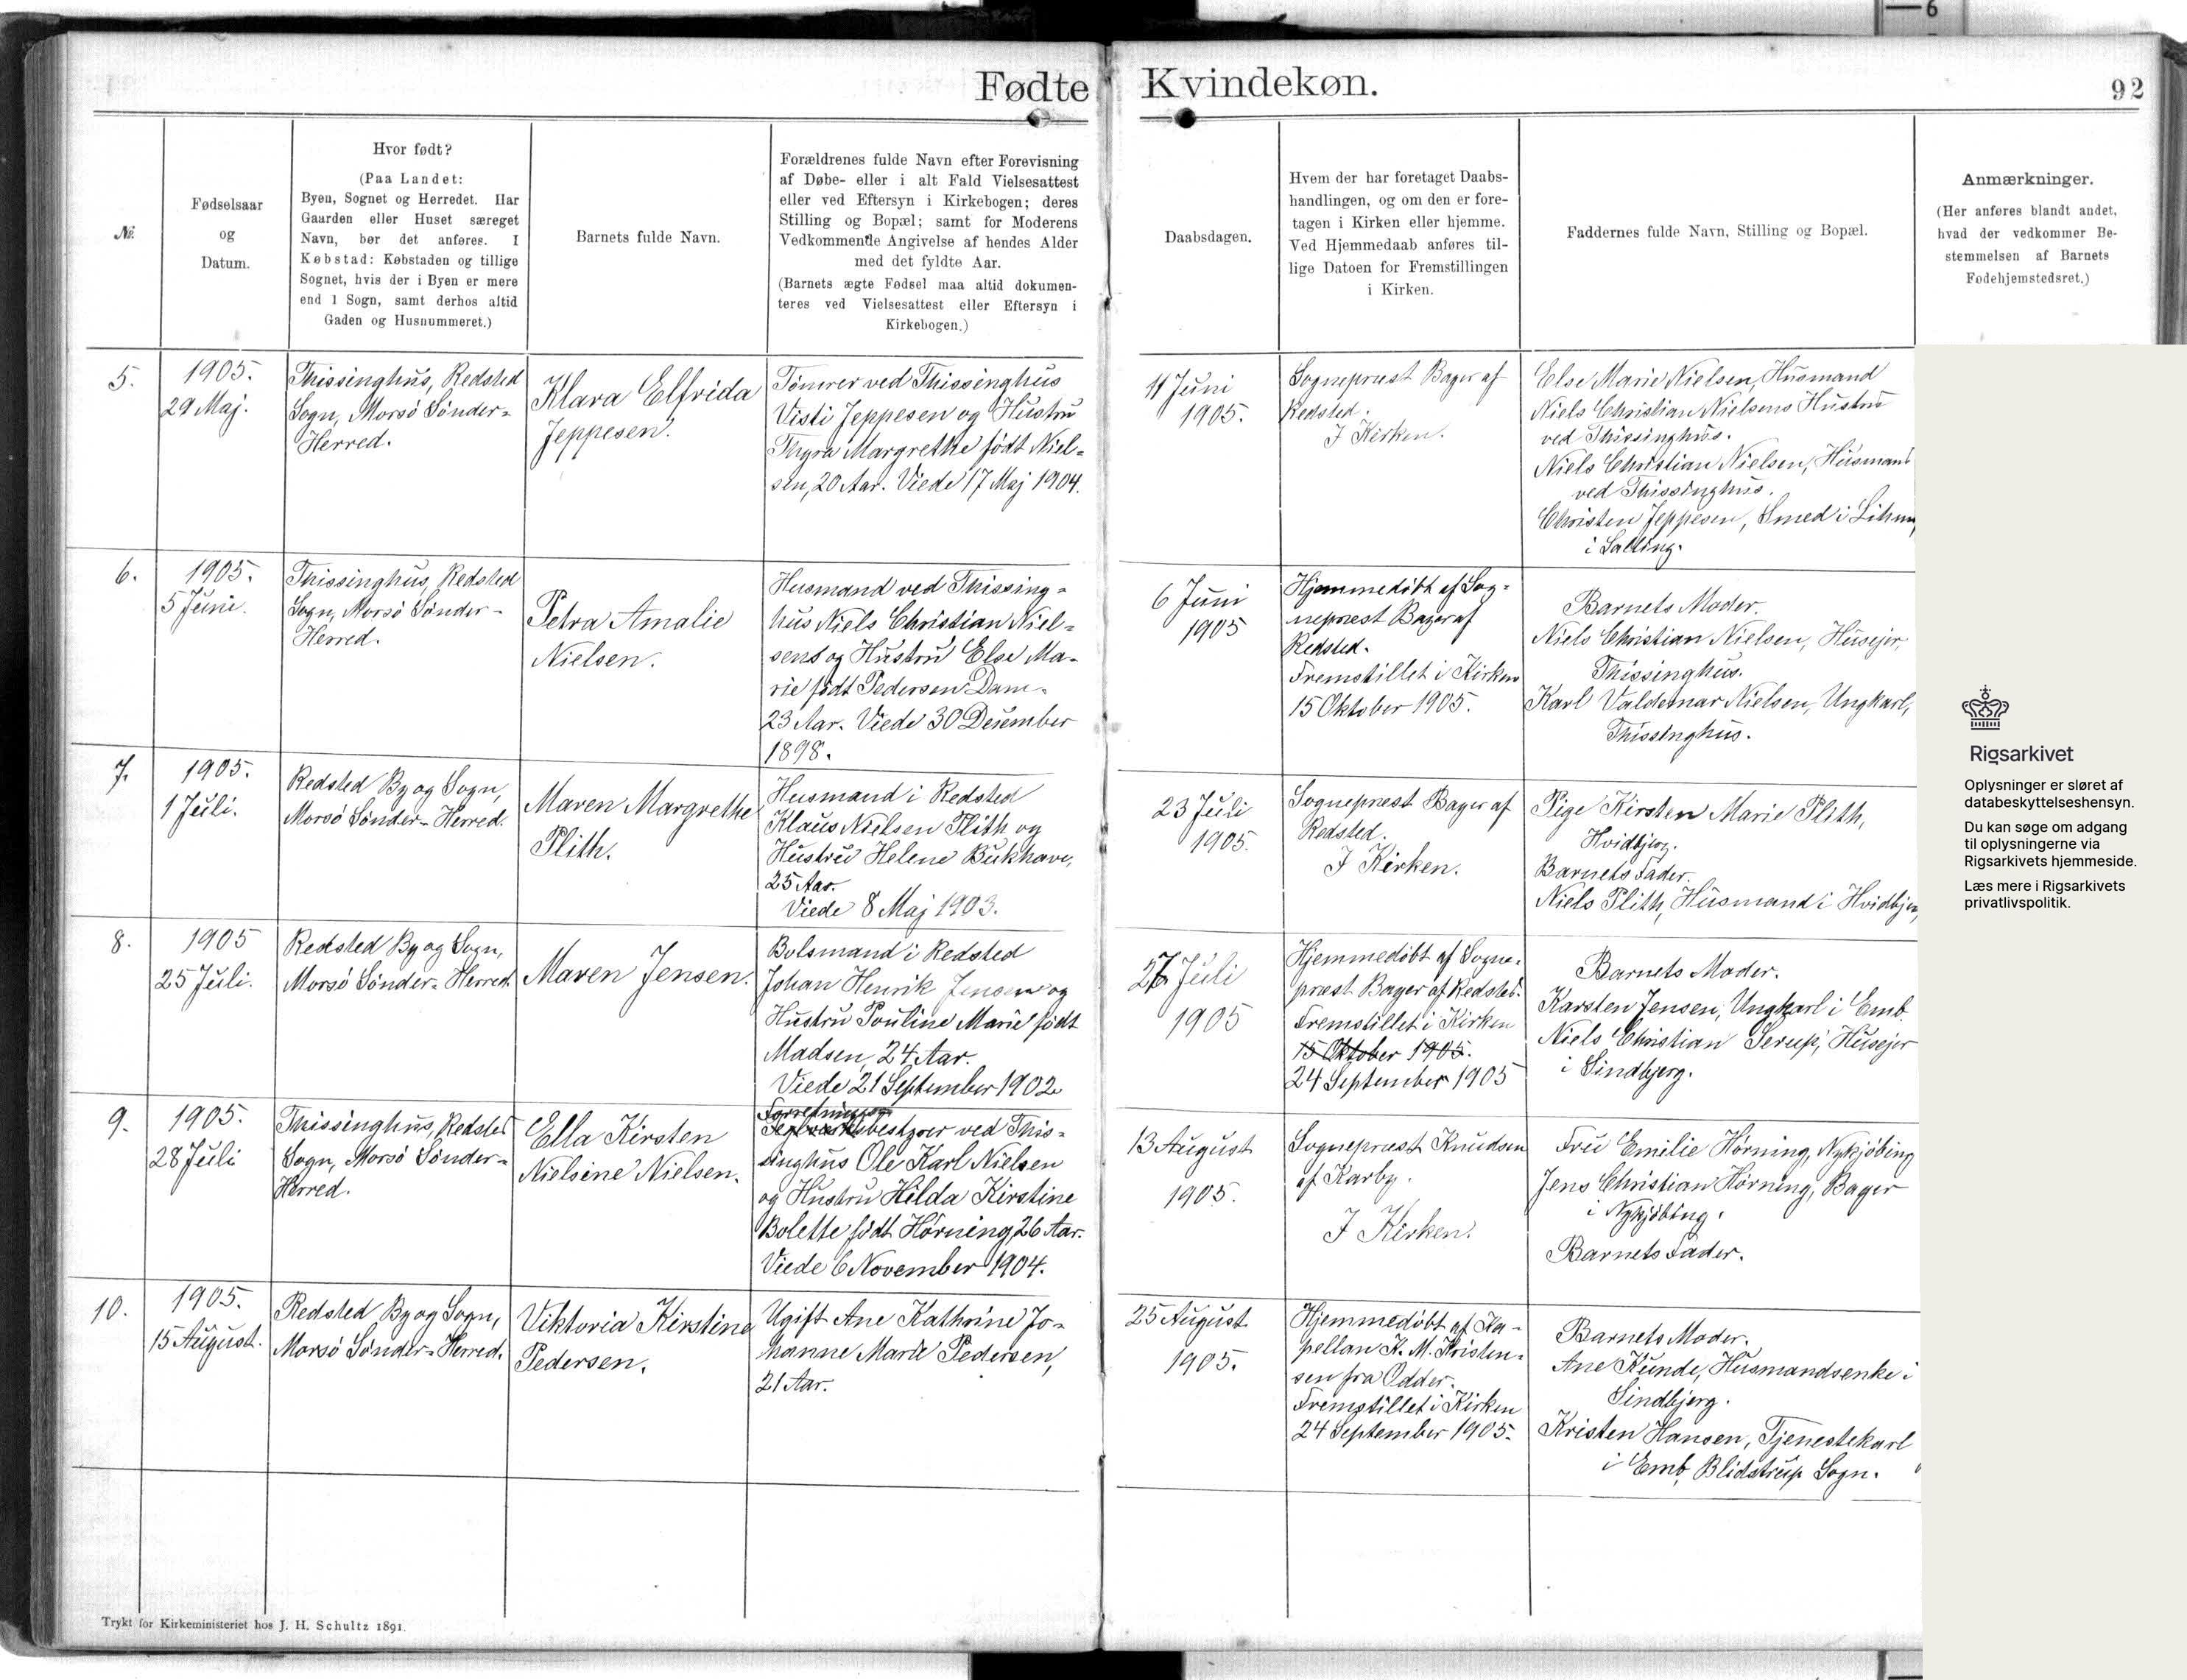 6
Fødte Kvindekøn.
92
№
Fødselsaar
og
Datum.
Hvor født?
(Paa Landet:
Byen, Sognet og Herredet. Har
Gaarden eller Huset særeget
Navn, bør det anføres. I
Købstad: Købstaden og tillige
Sognet, hvis der i Byen er mere
end 1 Sogn, samt derhos altid
Gaden og Husnummeret.)
Barnets fulde Navn.
Forældrenes fulde Navn efter Forevisning
af Døbe- eller i alt Fald Vielsesattest
eller ved Eftersyn i Kirkebogen; deres
Stilling og Bopæl; samt for Moderens
Vedkommende Angivelse af hendes Alder
med det fyldte Aar.
(Barnets ægte Fødsel maa altid dokumen-
teres ved Vielsesattest eller Eftersyn i
Kirkebogen.)
Daabsdagen.
Hvem der har foretaget Daabs-
handlingen, og om den er fore-
tagen i Kirken eller hjemme.
Ved Hjemmedaab anføres til-
lige Datoen for Fremstillingen
i Kirken.
Faddernes fulde Navn, Stilling og Bopæl.
Anmærkninger.
(Her anføres blandt andet,
hvad der vedkommer Be-
stemmelsen af Barnets
Fødehjemstedsret.)
5.
1905.
29 Maj.
Thissinghus, Redsted
Sogn, Morsö Sönder-
Herred.
Klara Elfrida
Jeppesen.
Tömrer ved Thissinghus
Visti Jeppesen og Hustru
Thyra Margrethe födt Niel-
sen, 20 Aar. Viede 17 Maj 1904.
11 Juni
1905.
Sognepræst Bager af
Redsted.
I Kirken.
Else Marie Nielsen, Husmand
Niels Christian Nielsens Hustru
ved Thissinghus.
Niels Christian Nielsen, Husmand
ved Thissinghus.
Christen Jeppesen, Smed i Lihm,
i Salling.
6.
1905.
5 Juni.
Thissinghus, Redsted
Sogn, Morsö Sönder-
Herred.
Petra Amalie
Nielsen.
Husmand ved Thissing-
hus Niels Christian Niel-
sens og Hustru Else Ma-
rie födt Pedersen Dam-
23 Aar. Viede 30 December
1898.
6 Juni
1905
Hjemmedöbt af Sog-
nepræst Bager af
Redsted.
Fremstillet i Kirken
15 Oktober 1905.
Barnets Moder.
Niels Christian Nielsen, Husejer,
Thissinghus.
Karl Valdemar Nielsen, Ungkarl,
Thissinghus.
7.
1905.
1 Juli.
Redsted By og Sogn,
Morsö Sönder-Herred.
Maren Margrethe
Plith.
Husmand i Redsted
Klaus Nielsen Plith og
Hustru Helene Bukhave,
25 Aar.
Viede 8 Maj 1903.
23 Juli
1905.
Sognepræst Bager af
Redsted.
I Kirken.
Pige Kirsten Marie Plith,
Hvidbjerg.
Barnets Fader.
Niels Plith, Husmand i Hvidbjerg
8.
1905
25 Juli.
Redsted By og Sogn,
Morsö Sönder-Herred.
Maren Jensen.
Bolsmand i Redsted
Johan Henrik Jensen og
Hustru Pouline Marie födt
Madsen, 24 Aar.
Viede 21 September 1902
27 Juli
1905
Hjemmedöbt af Sogne-
præst Bager af Redsted.
Fremstillet i Kirken
15 Oktober 1905.
24 September 1905
Barnets Moder.
Karsten Jensen, Ungkarl i Emb
Niels Christian Serup, Husejer
i Sindbjerg.
9.
1905.
28 Juli
Thissinghus, Redsted
Sogn, Morsö Sönder-
Herred.
Ella Kirsten
Nielsine Nielsen.
bestyrer ved This-
singhus Ole Karl Nielsen
og Hustru Hilda Kirstine
Bolette födt Hörning, 26 Aar.
Viede 6 November 1904.
13 August
1905.
Sognepræst Knudsen
af Karby.
I Kirken.
Fru Emilie Hörning, Nykjöbing
Jens Christian Hörning, Bager
i Nykjöbing.
Barnets Fader.
10.
1905.
15 August.
Redsted By og Sogn,
Morsö Sönder-Herred.
Viktoria Kirstine
Pedersen.
Ugift Ane Kathrine Jo-
hanne Marie Pedersen,
21 Aar.
25 August
1905.
Hjemmedöbt af Ka-
pellan K. M. Kristen-
sen fra Odder.
Fremstillet i Kirken
24 September 1905.
Barnets Moder.
Ane Kunde, Husmandsenke i
Sindbjerg.
Kristen Hansen, Tjenestekarl
i Emb, Blidstrup Sogn.
Rigsarkivet
Oplysninger er sløret af
databeskyttelseshensyn.
Du kan søge om adgang
til oplysningerne via
Rigsarkivets hjemmeside.
Læs mere i Rigsarkivets
privatlivspolitik.
Trykt for Kirkeministeriet hos J. H. Schultz 1891.